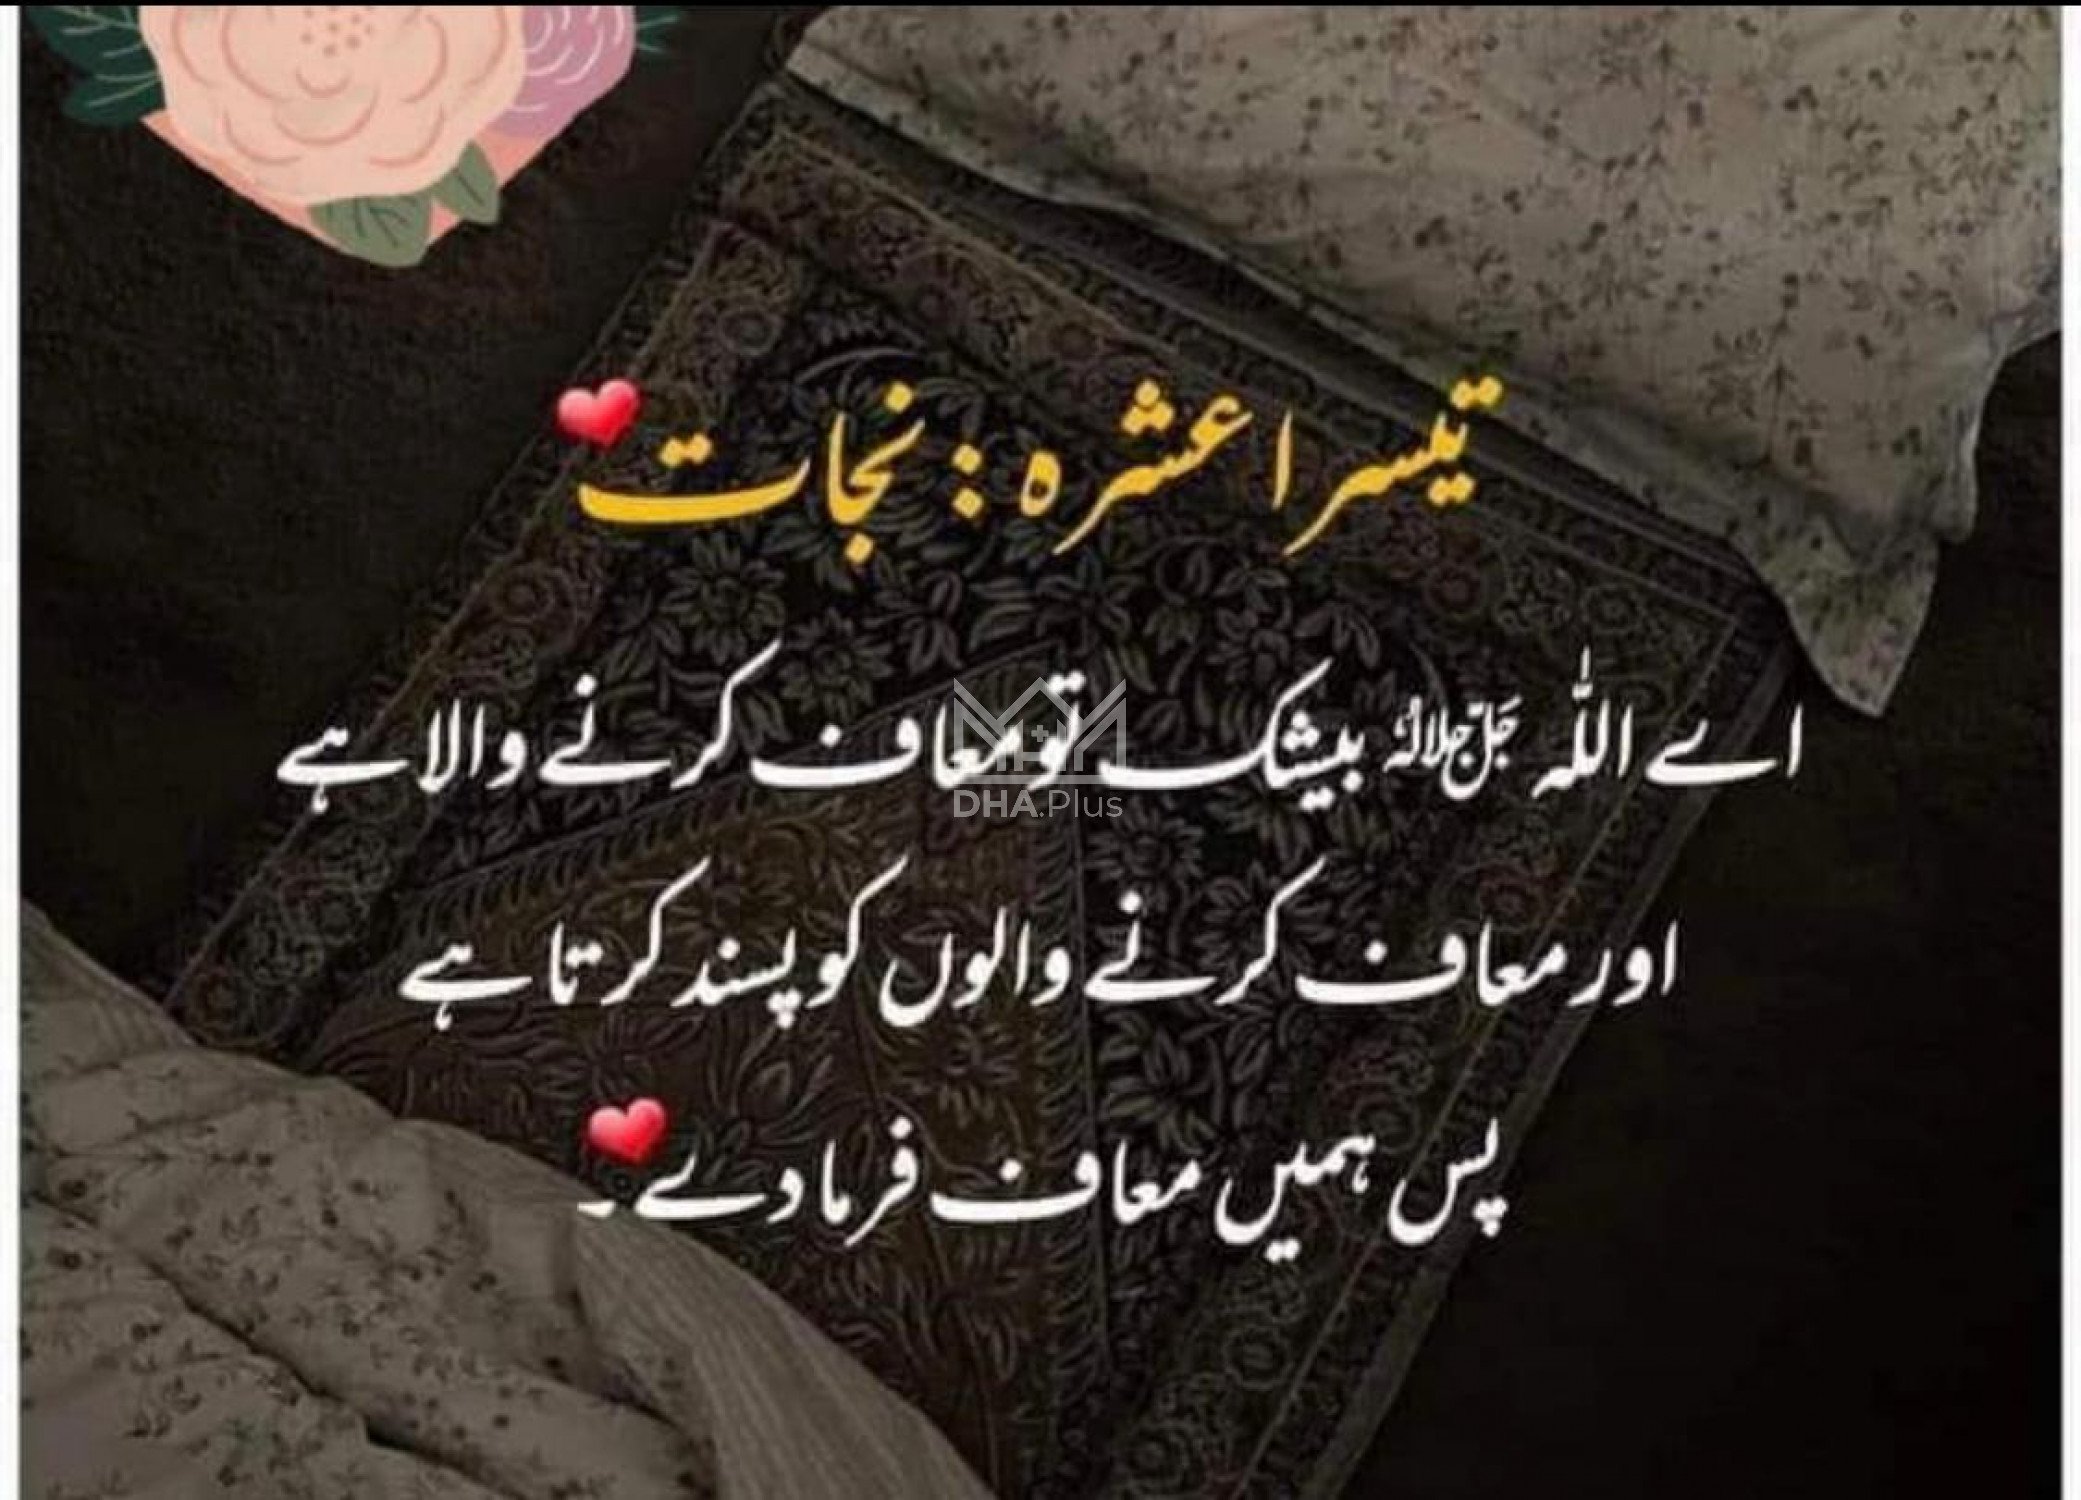 تیسرا عشرہ : نجات
اے اللہ جَلَّ جَلَالُہٗ بیشک تو معاف کرنے والا ہے
DHA.Plus
اور معاف کرنے والوں کو پسند کرتا ہے
پس ہمیں معاف فرما دے۔